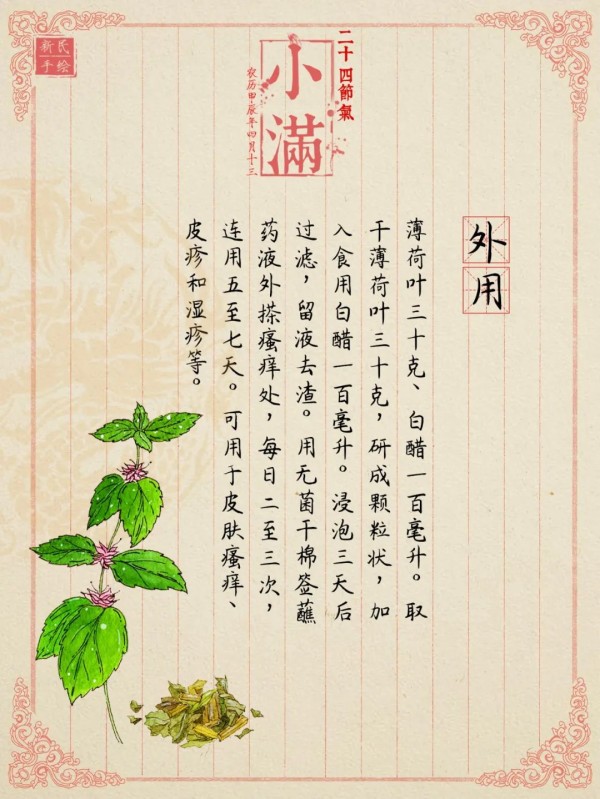 新民
手绘
二十四節氣
小滿
农历甲辰年四月十三
外用
薄荷叶三十克、白醋一百毫升。取
干薄荷叶三十克，研成颗粒状，加
入食用白醋一百毫升。浸泡三天后
过滤，留液去渣。用无菌干棉签蘸
药液外搽瘙痒处，每日二至三次，
连用五至七天。可用于皮肤瘙痒、
皮疹和湿疹等。